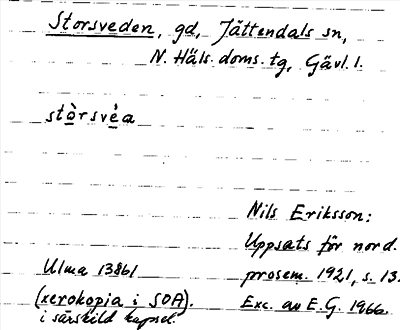 Storsveden, gd, Jättendals sn,
N. Häls. doms. tg, Gävl. l.
stòrsvèa
Nils Eriksson:
Uppsats för nord.
prosem. 1921, s. 13.
Exc. av E.G. 1966.
Ulma 13861
(xerokopia i SOA).
i särskild kapsel.